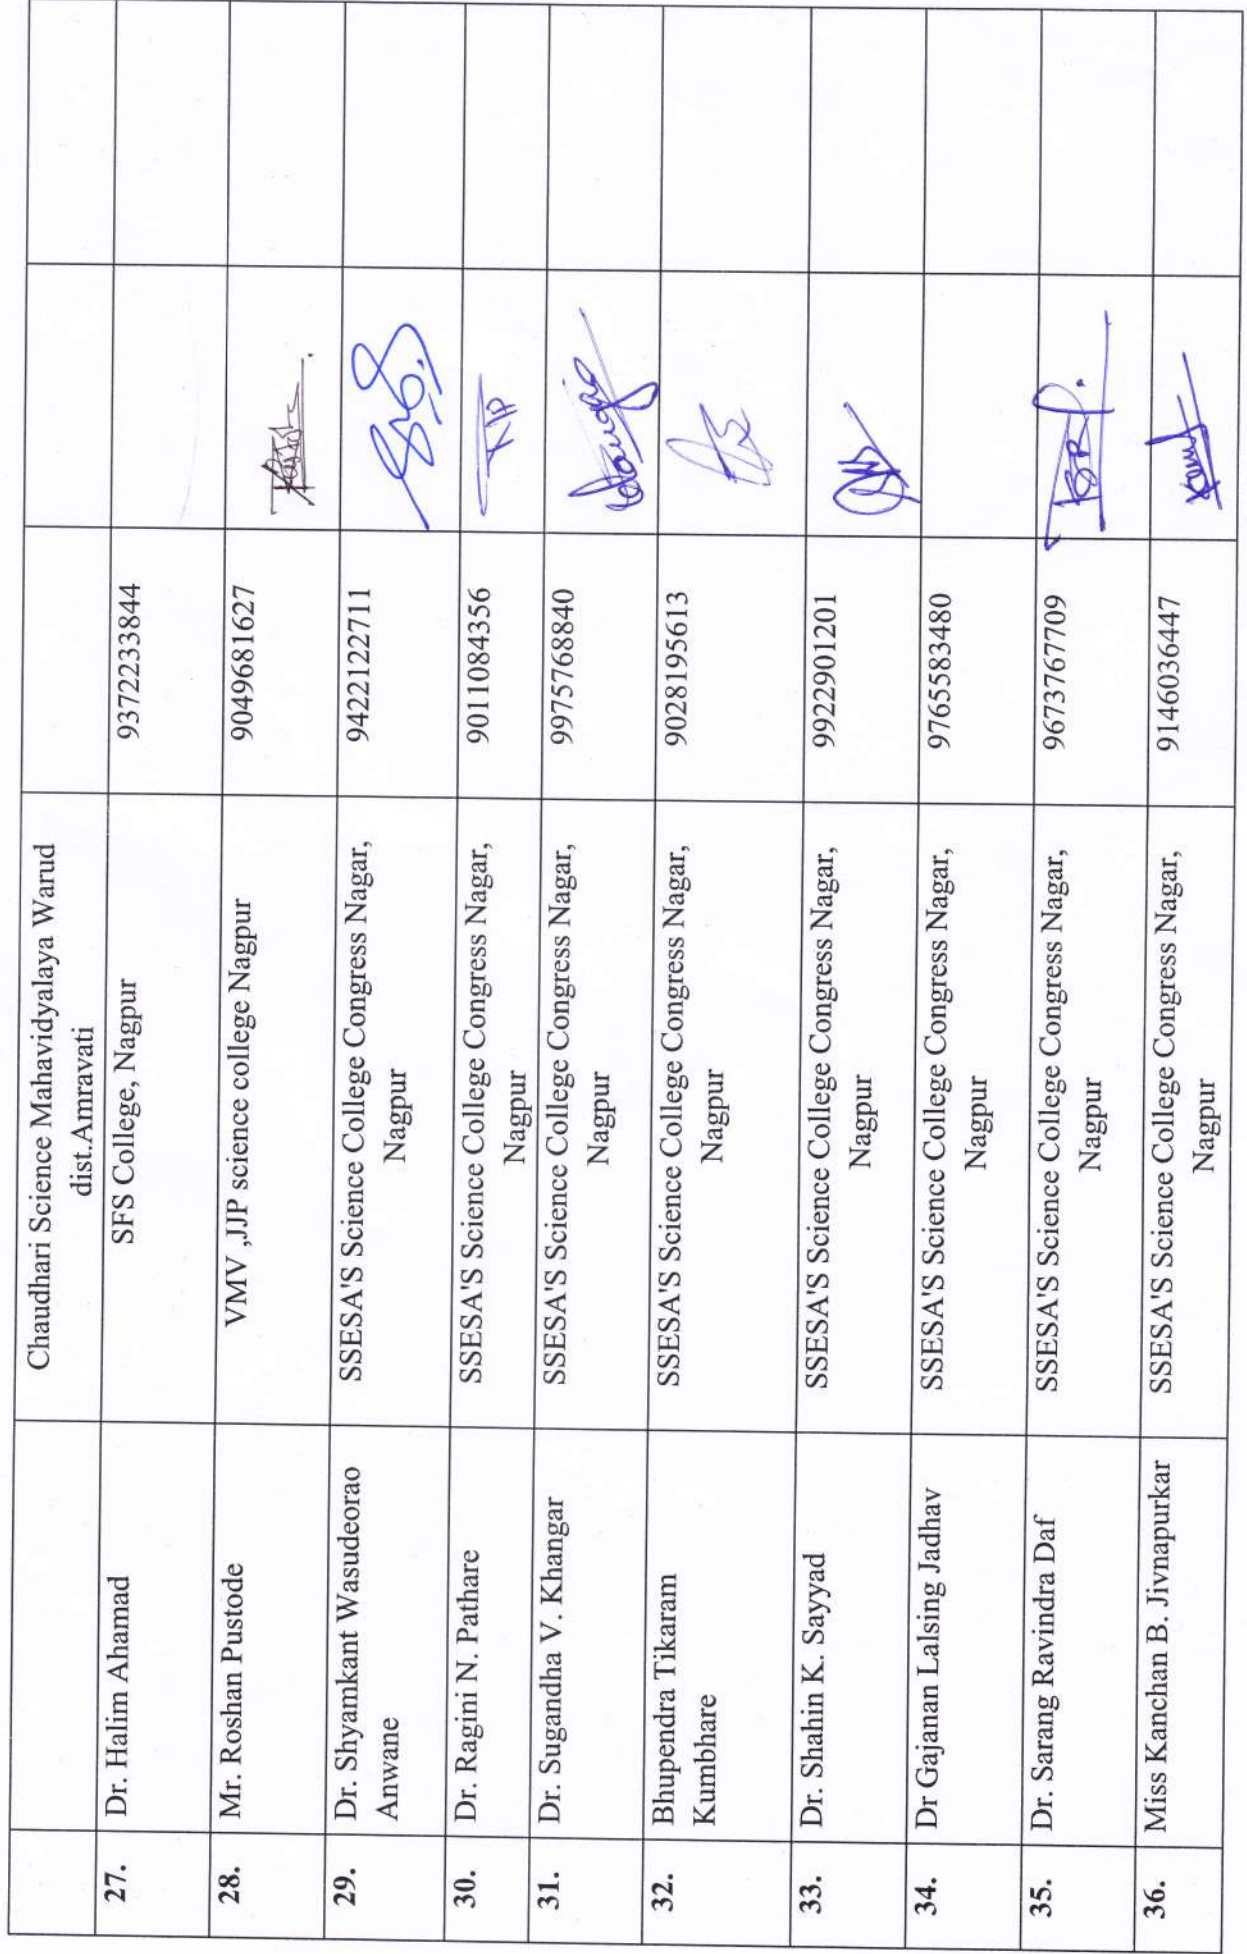 Chaudhari Science Mahavidyalaya Warud
dist.Amravati
27. Dr. Halim Ahamad SFS College, Nagpur 9372233844
28. Mr. Roshan Pustode VMV ,JJP science college Nagpur 9049681627
29. Dr. Shyamkant Wasudeorao SSESA'S Science College Congress Nagar, 9422122711
Anwane Nagpur
30. Dr. Ragini N. Pathare SSESA'S Science College Congress Nagar, 9011084356
Nagpur
31. Dr. Sugandha V. Khangar SSESA'S Science College Congress Nagar, 9975768840
Nagpur
32. Bhupendra Tikaram SSESA'S Science College Congress Nagar, 9028195613
Kumbhare Nagpur
33. Dr. Shahin K. Sayyad SSESA'S Science College Congress Nagar, 9922901201
Nagpur
34. Dr Gajanan Lalsing Jadhav SSESA'S Science College Congress Nagar, 9765583480
Nagpur
35. Dr. Sarang Ravindra Daf SSESA'S Science College Congress Nagar, 9673767709
Nagpur
36. Miss Kanchan B. Jivnapurkar SSESA'S Science College Congress Nagar, 9146036447
Nagpur